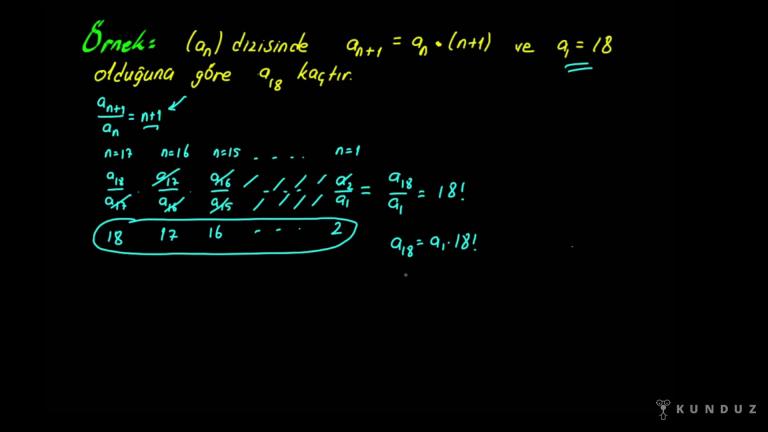 Örnek: (aₙ) dizisinde aₙ₊₁ = aₙ · (n+1) ve a₁ = 18
olduğuna göre a₁₈ kaçtır.
aₙ₊₁/aₙ = n+1
n=17 n=16 n=15 . . . . n=1
a₁₈/a₁₇ · a₁₇/a₁₆ · a₁₆/a₁₅ . . . a₂/a₁ = a₁₈/a₁ = 18!
18 17 16 . . . 2
a₁₈ = a₁ · 18!
KUNDUZ